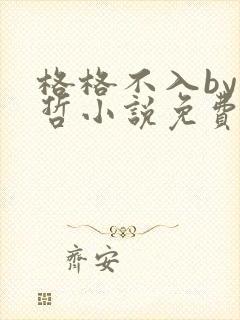 格格不入by
哲小說免費
齊安